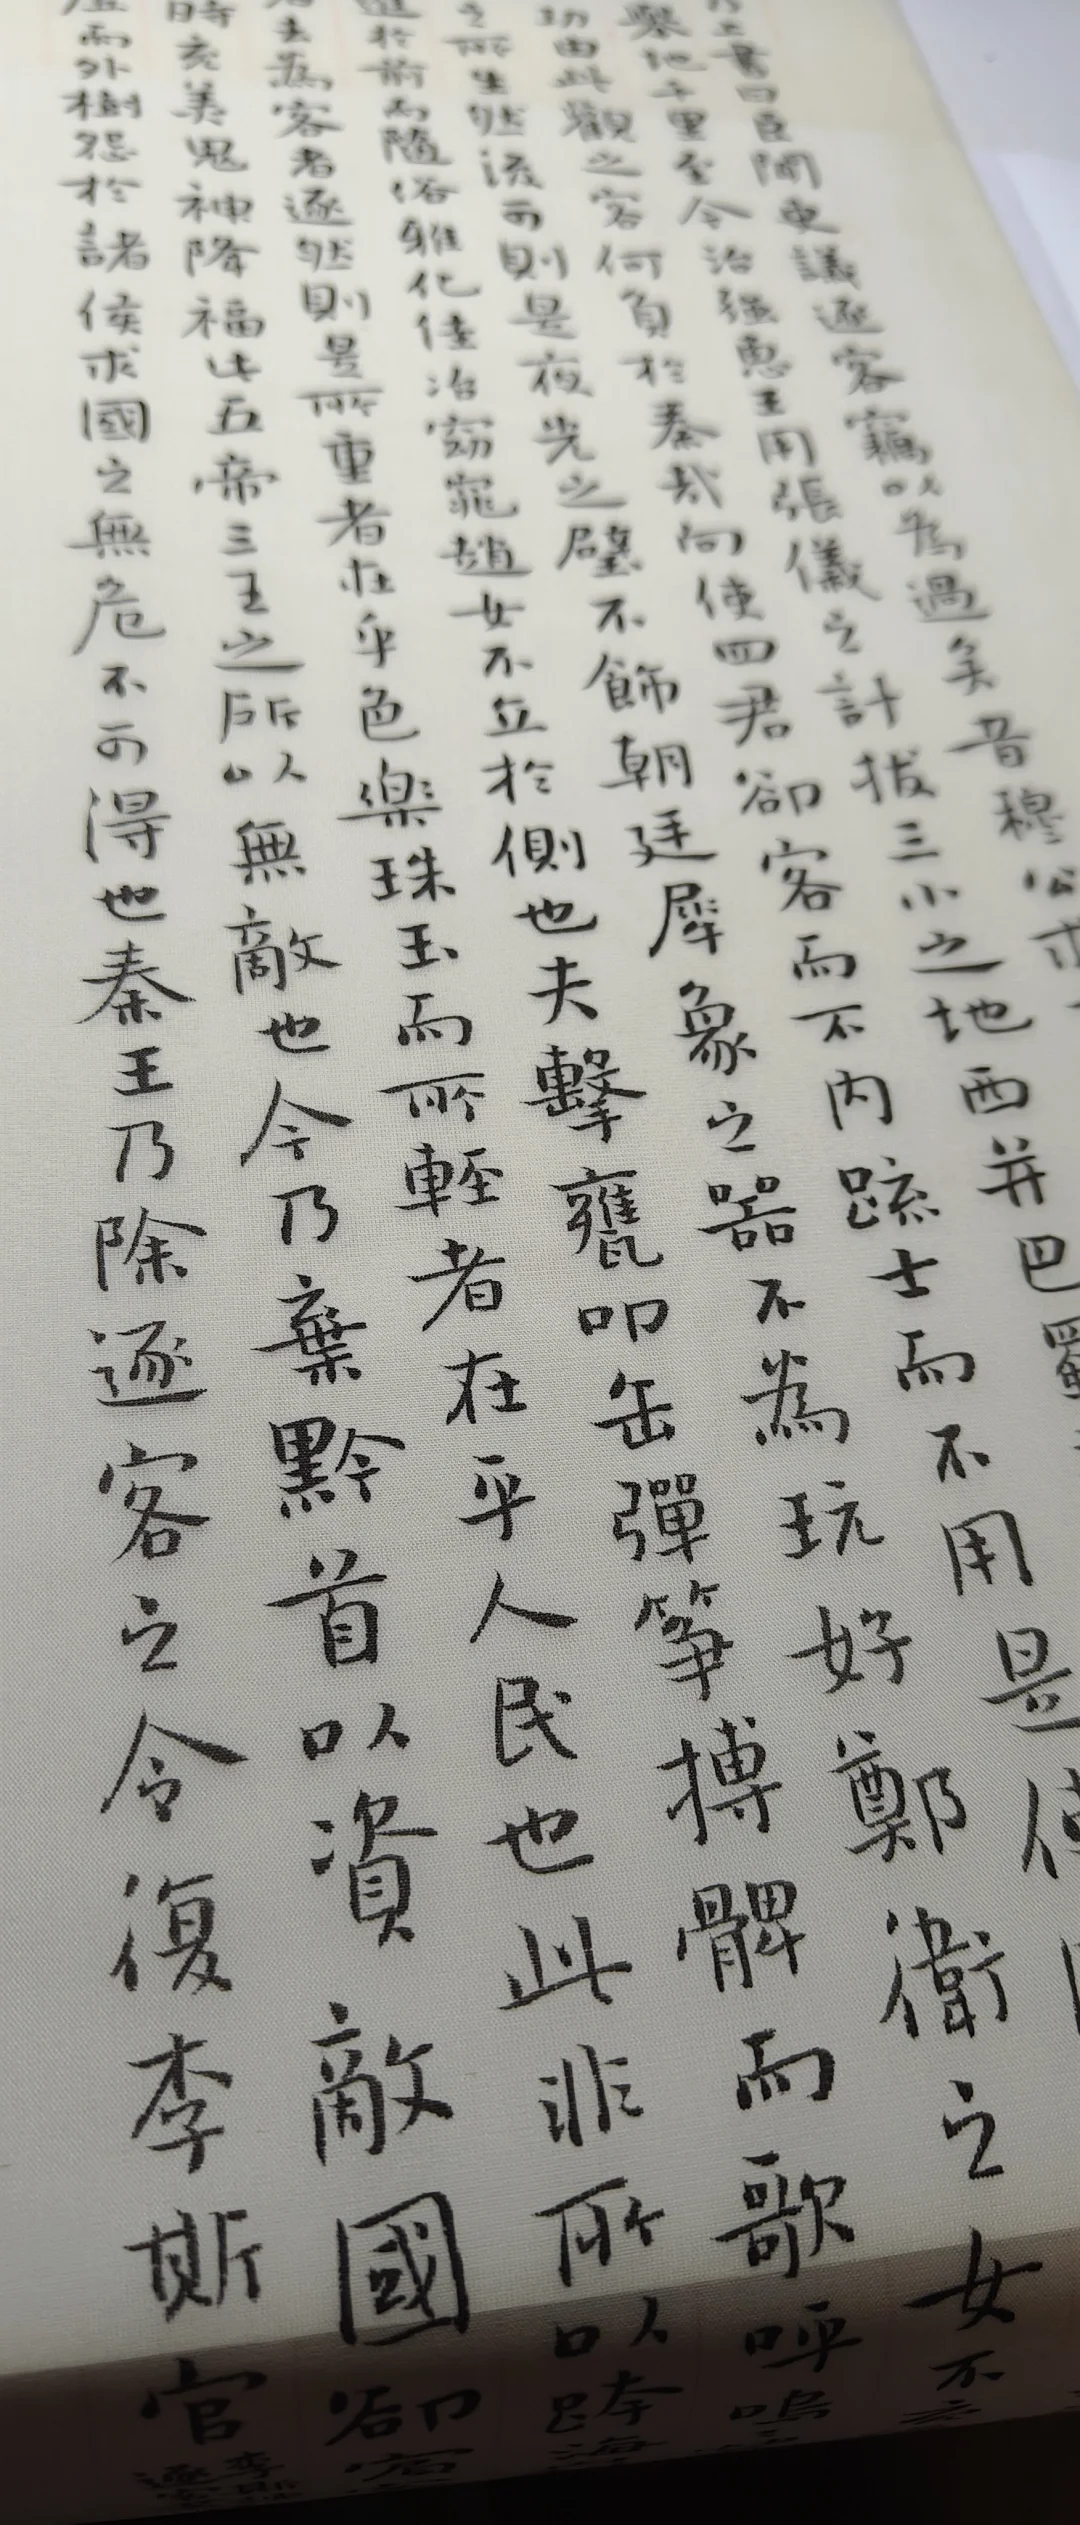 上書曰臣聞吏議逐客竊以為過矣昔穆公求
舉地千里至今治強惠王用張儀之計拔三川之地西并巴蜀
功由此觀之客何負於秦哉向使四君卻客而不内疏士而不用是使
之所生然後可則是夜光之璧不飾朝廷犀象之器不為玩好鄭衛之女不充
進於前而隨俗雅化佳冶窈窕趙女不立於側也夫擊甕叩缶彈箏搏髀而歌呼嗚
者去為客者逐然則是所重者在乎色樂珠玉而所輕者在乎人民也此非所以跨海
時充美鬼神降福此五帝三王之所以無敵也今乃棄黔首以資敵國卻賓
虛而外樹怨於諸侯求國之無危不可得也秦王乃除逐客之令復李斯官